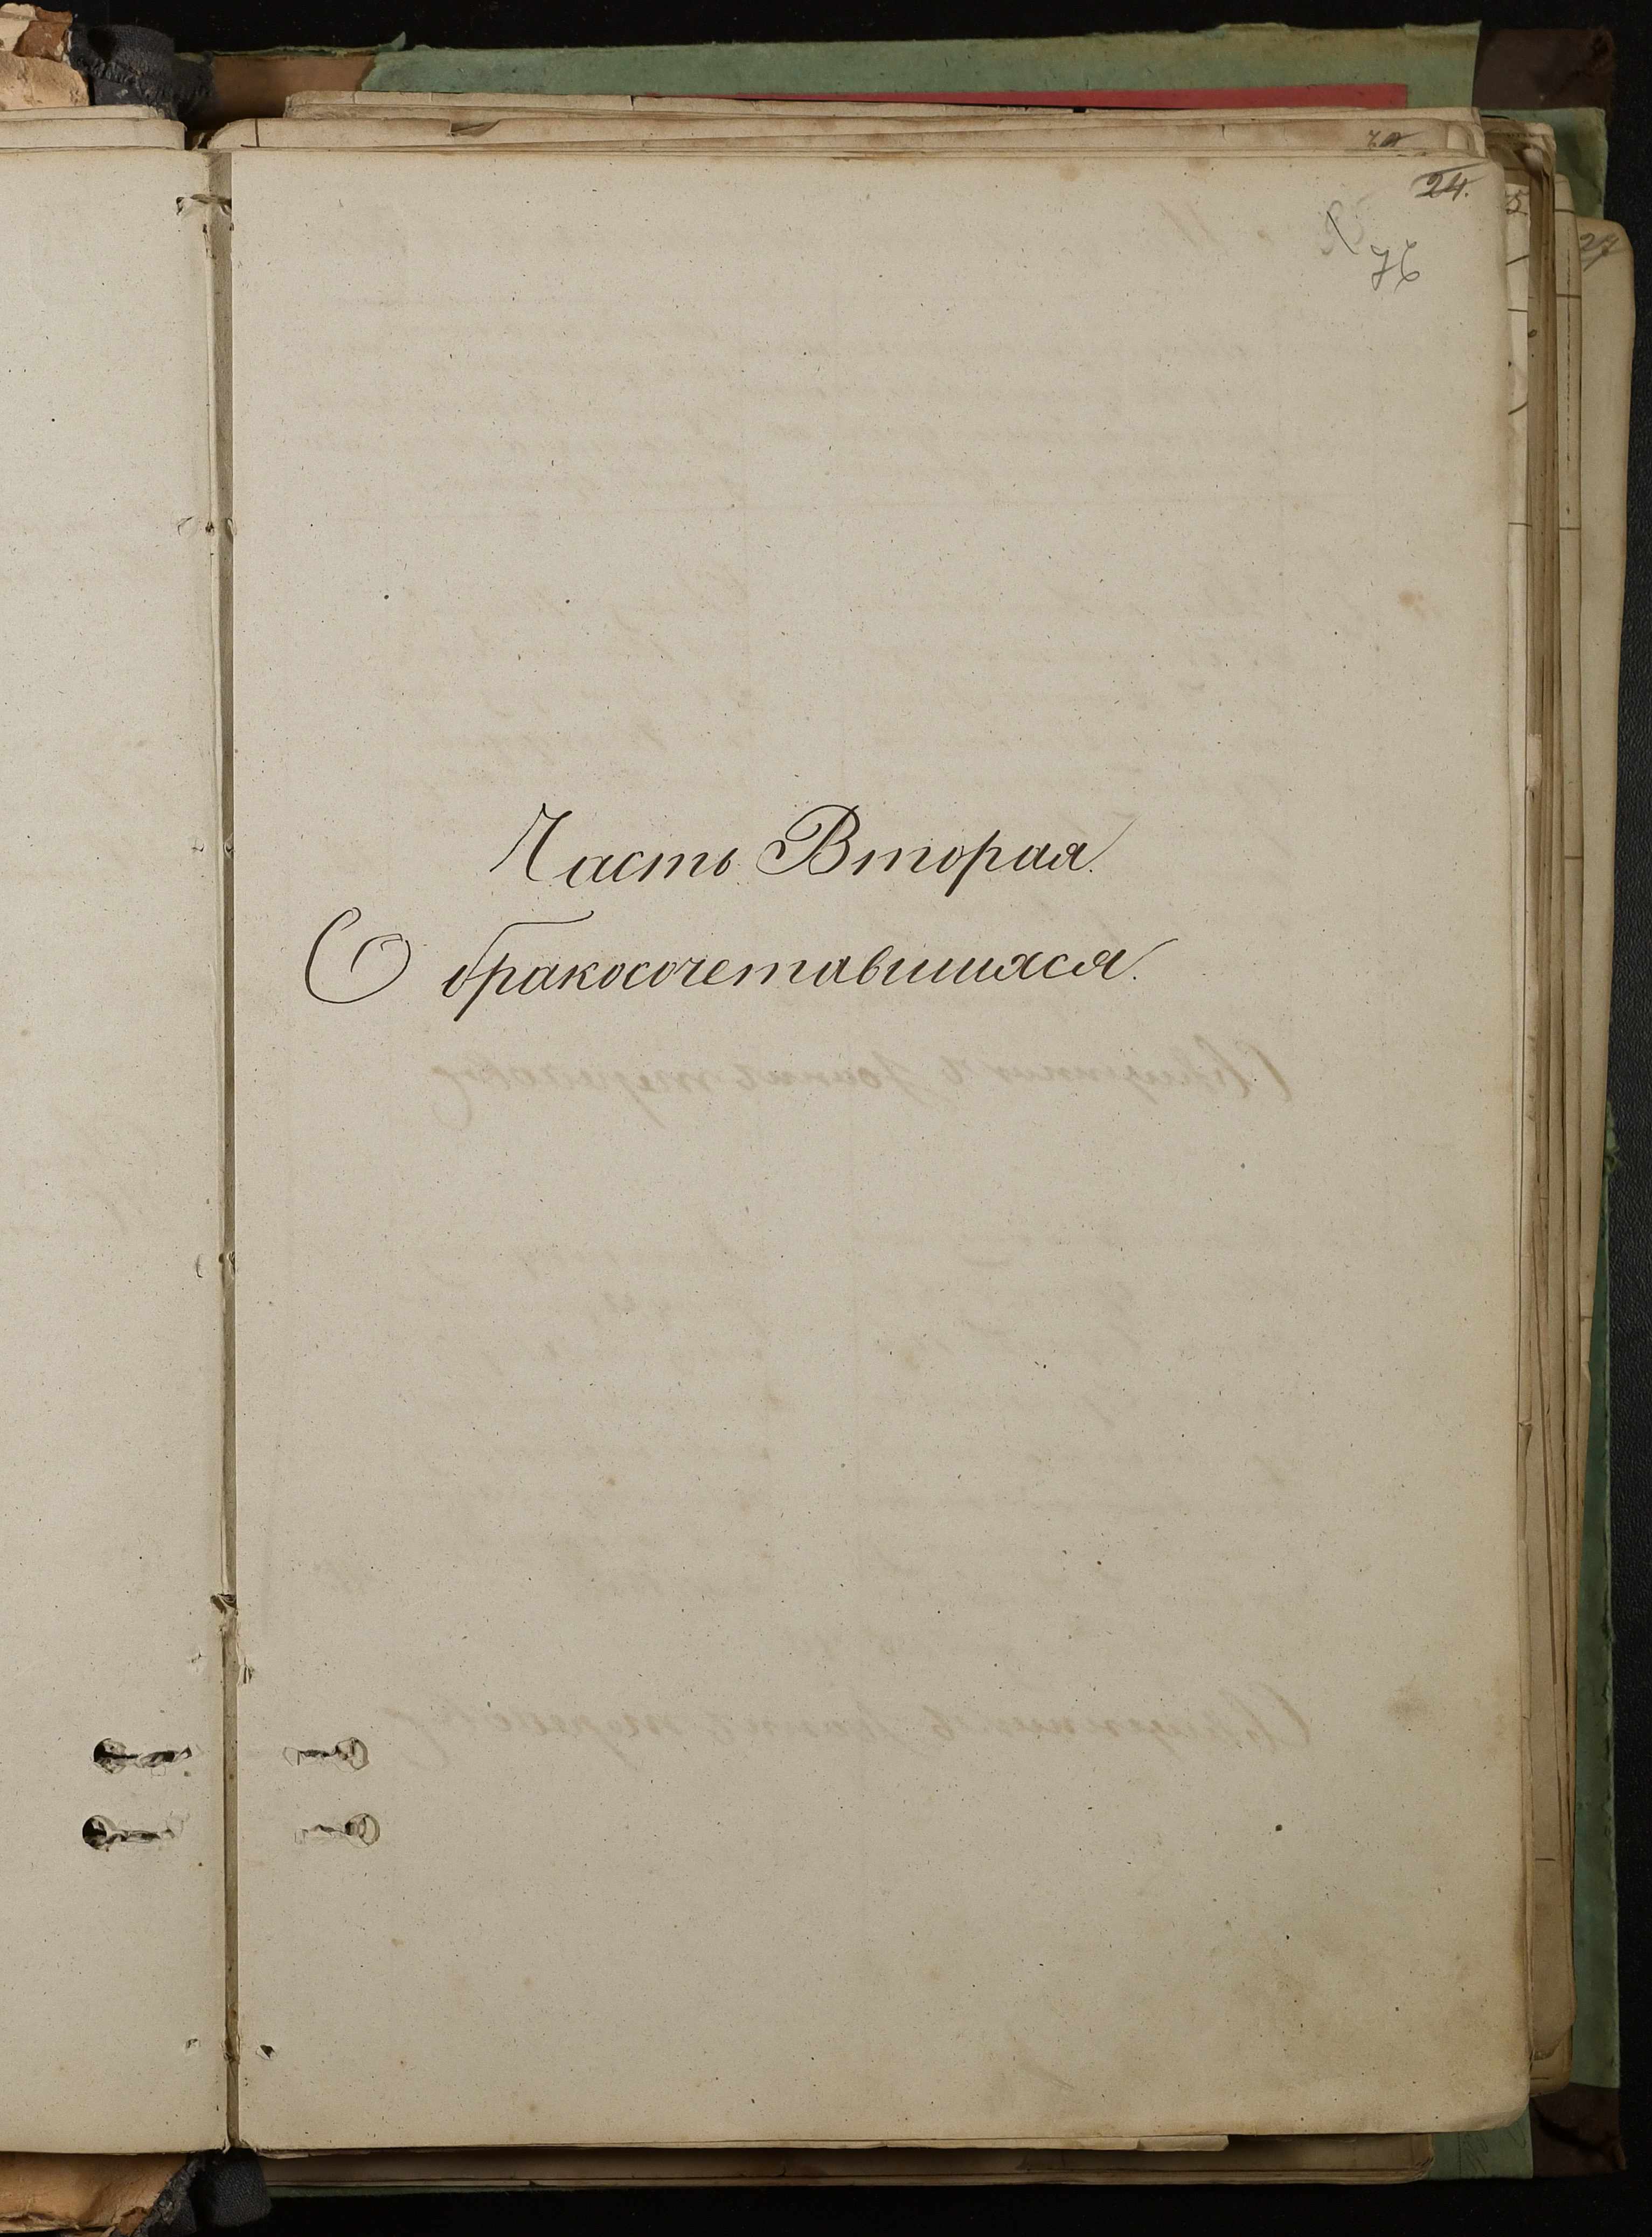 24.
76
Часть Вторая.
О бракосочетавшихся.
27